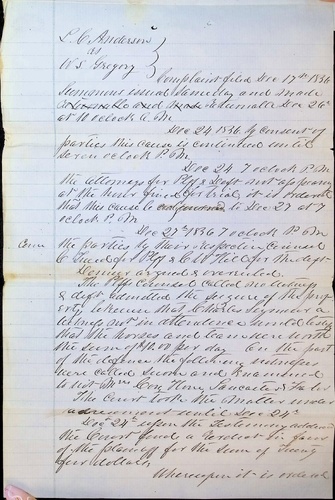 L. C. Anderson
vs
W S Gregory
Complaint filed Dec 17th 1886
Summons issued same day and made
returnable Dec 26th
at 11 oclock A. M
Dec 24 1886 by consent of
parties this cause is continued until
seven oclock P. M
Dec 24 7 oclock P. M
the attorneys for Plff & Deft not appearing
at the hour fixed for trial, it is ordered
that this cause be continued to Dec 27 at 7
oclock P. M
Dec 27th 1886 7 oclock P. M
the parties by their respective Counsel
for Plff & for the deft
Demurrer argued & overruled.
The Plffs Counsel called no witness
& deft admitted the seizure of the prop
erty likewise that Charles Seymour a
witness not in attendance would testify
that the horses and team were worth
the sum of per day. On the part
of the defence the following witnesses
were called sworn and examined
to wit
The Court took the matter under
advisement until Dec
Dec upon the testimony adduced
the Court find a verdict in favor
of the plaintiff for the sum of Twenty
four dollars,
Whereupon it is ordered